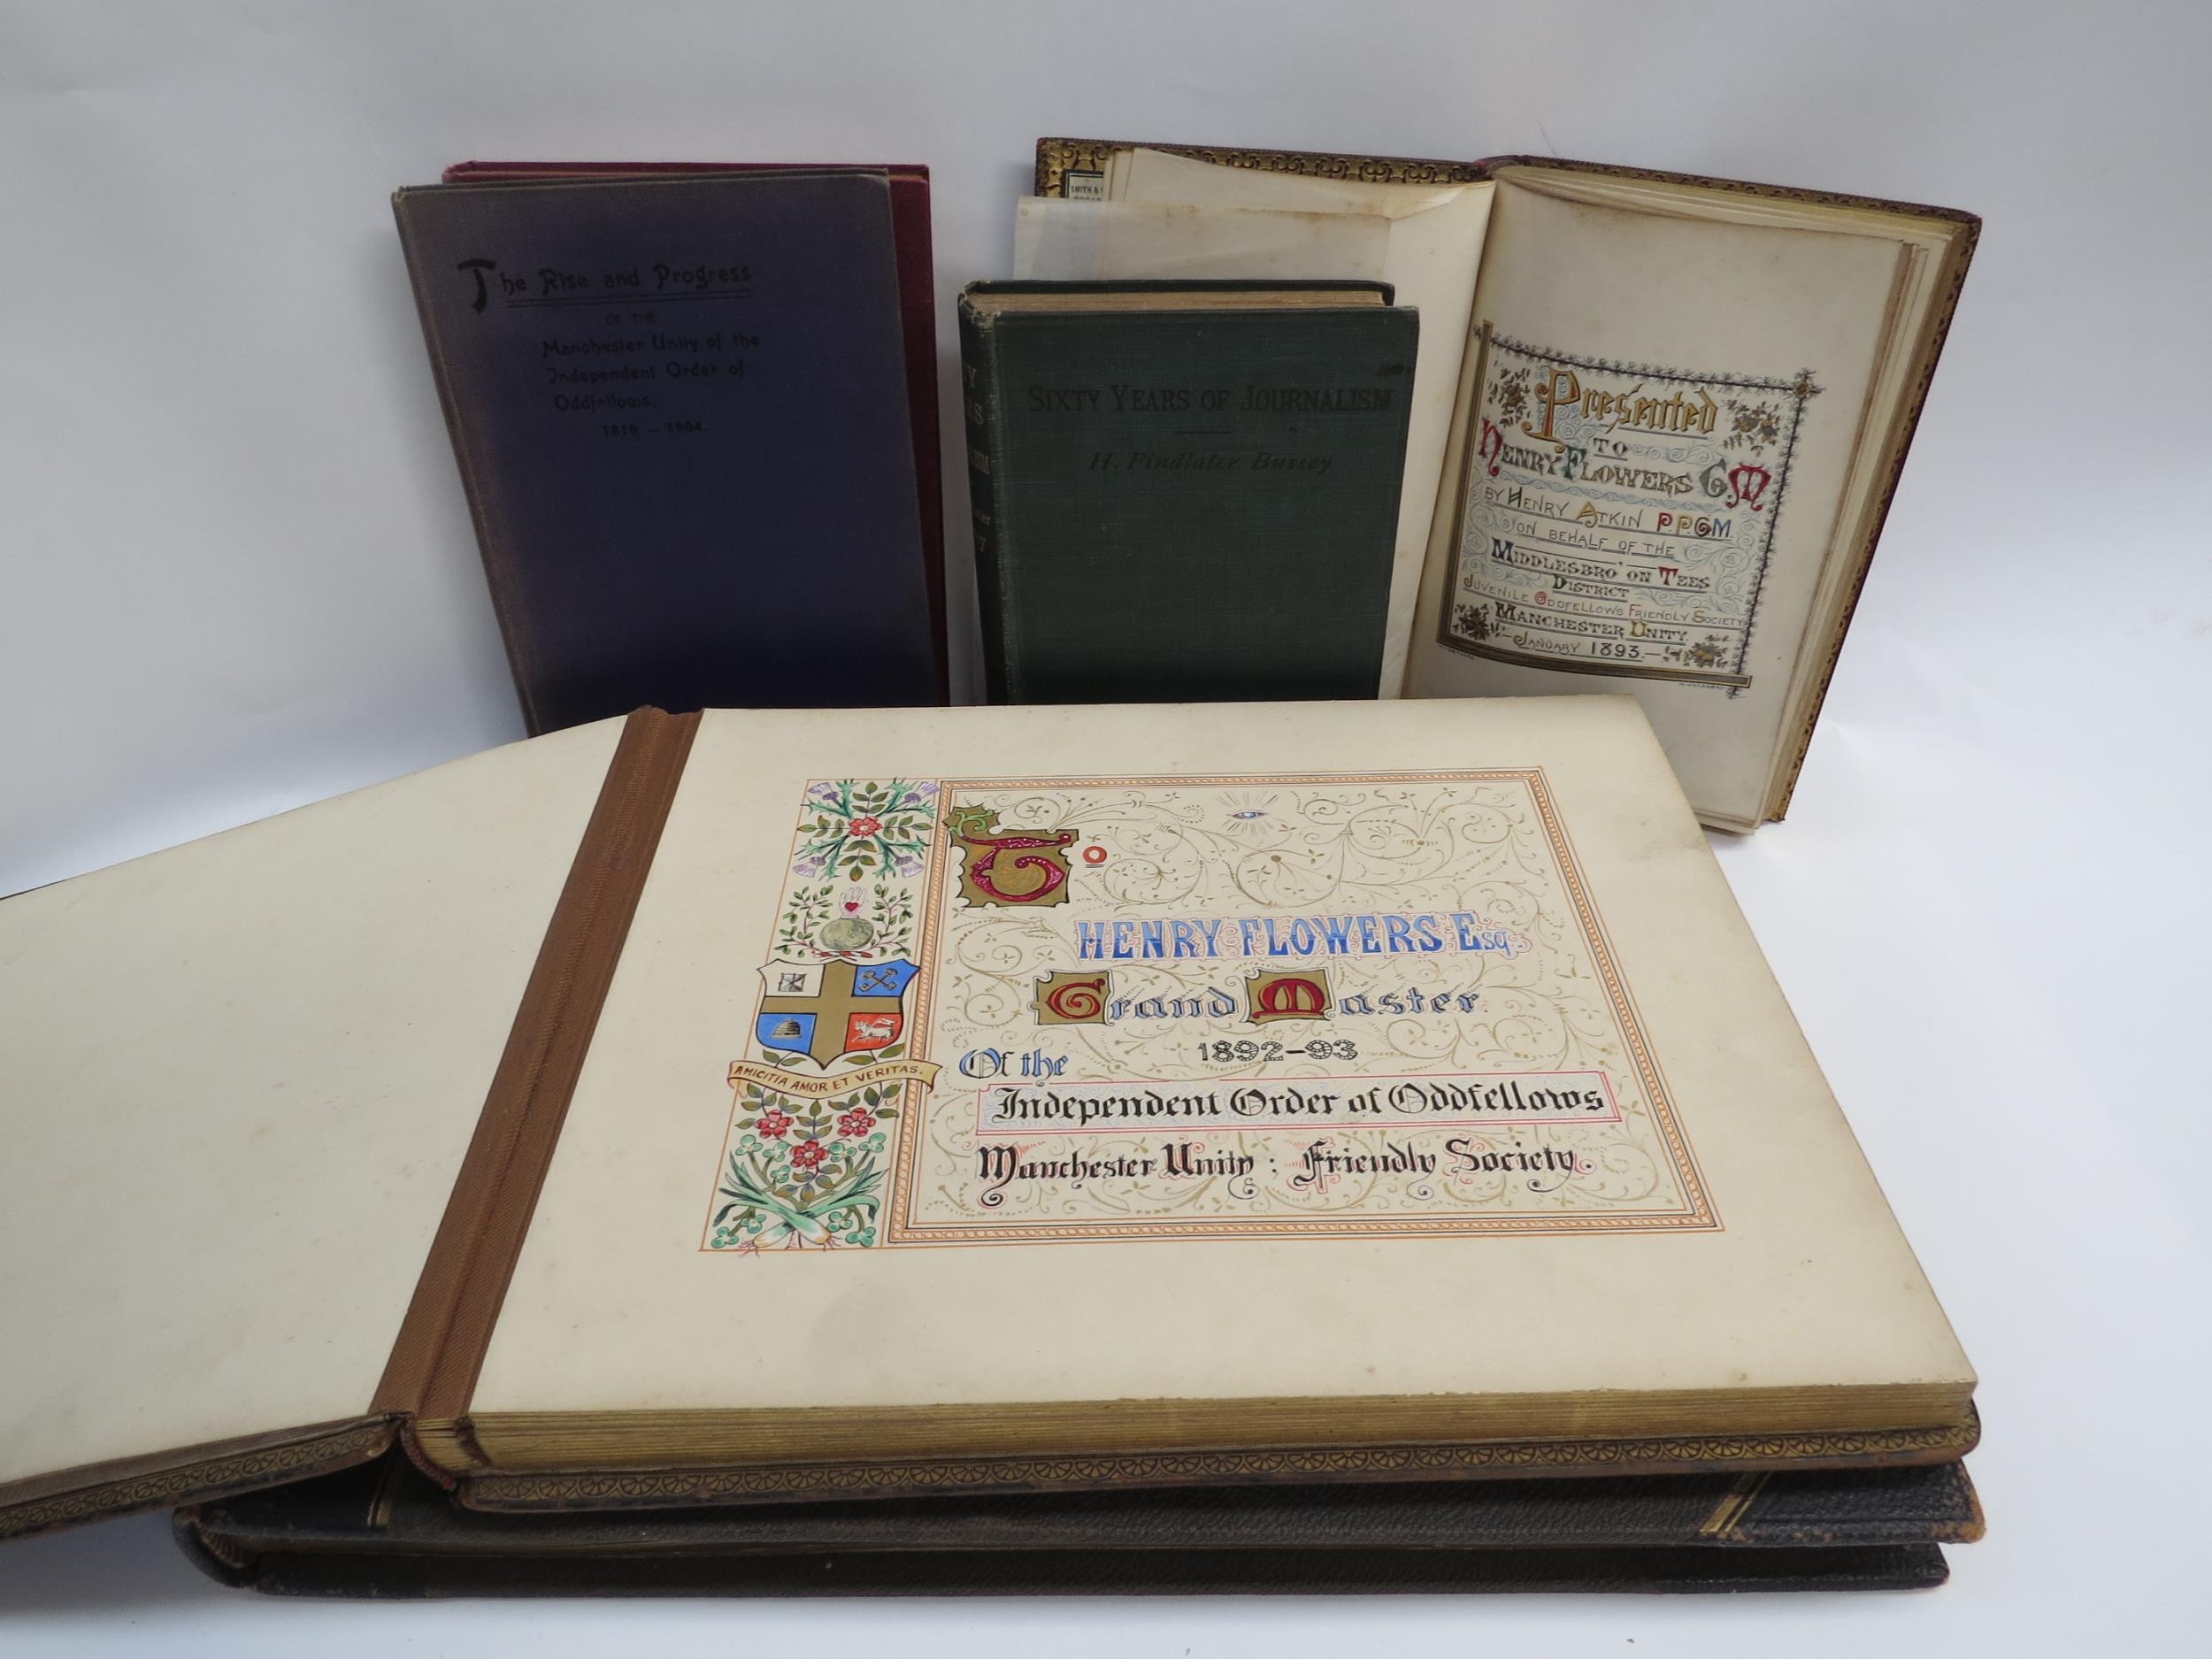 The Rise and Progress
OF THE
Manchester Unity of the
Independent Order of
Oddfellows
1810 — 1904.
SIXTY YEARS OF JOURNALISM
H. Findlater Bussey
SMITH &
Presented
TO
HENRY FLOWERS G.M
BY HENRY ATKIN P.P.G.M.
ON BEHALF OF THE
MIDDLESBRO' ON TEES
DISTRICT
JUVENILE ODDFELLOWS FRIENDLY SOCIETY
MANCHESTER UNITY.
JANUARY 1893.
To
HENRY FLOWERS Esq.
Grand Master
1892-93
Of the
Independent Order of Oddfellows
Manchester Unity : Friendly Society.
AMICITIA AMOR ET VERITAS.